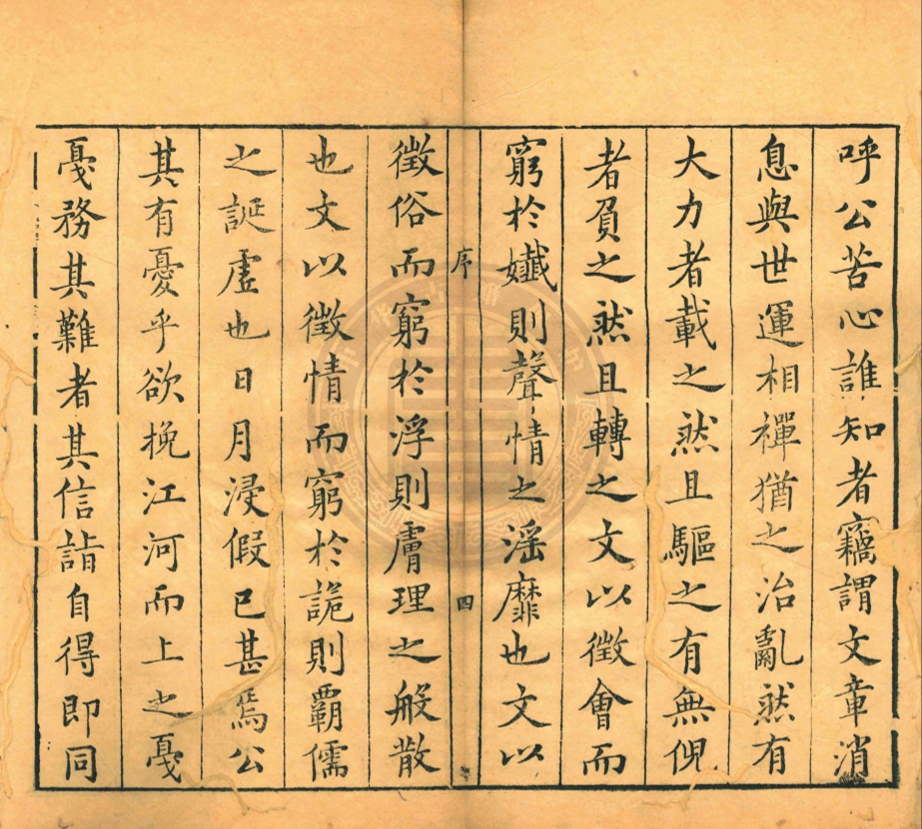 呼公苦心誰知者竊謂文章消
息與世運相禪猶之治亂然有
大力者載之然且驅之有無俔
者負之然且轉之文以徵會而
窮於孅則聲情之淫靡也文以
序 四
徵俗而窮於浮則膚理之般散
也文以徵情而窮於詭則覇儒
之誕虛也日月浸假已甚焉公
其有憂乎欲挽江河而上之戞
戞務其難者其信詣自得即同